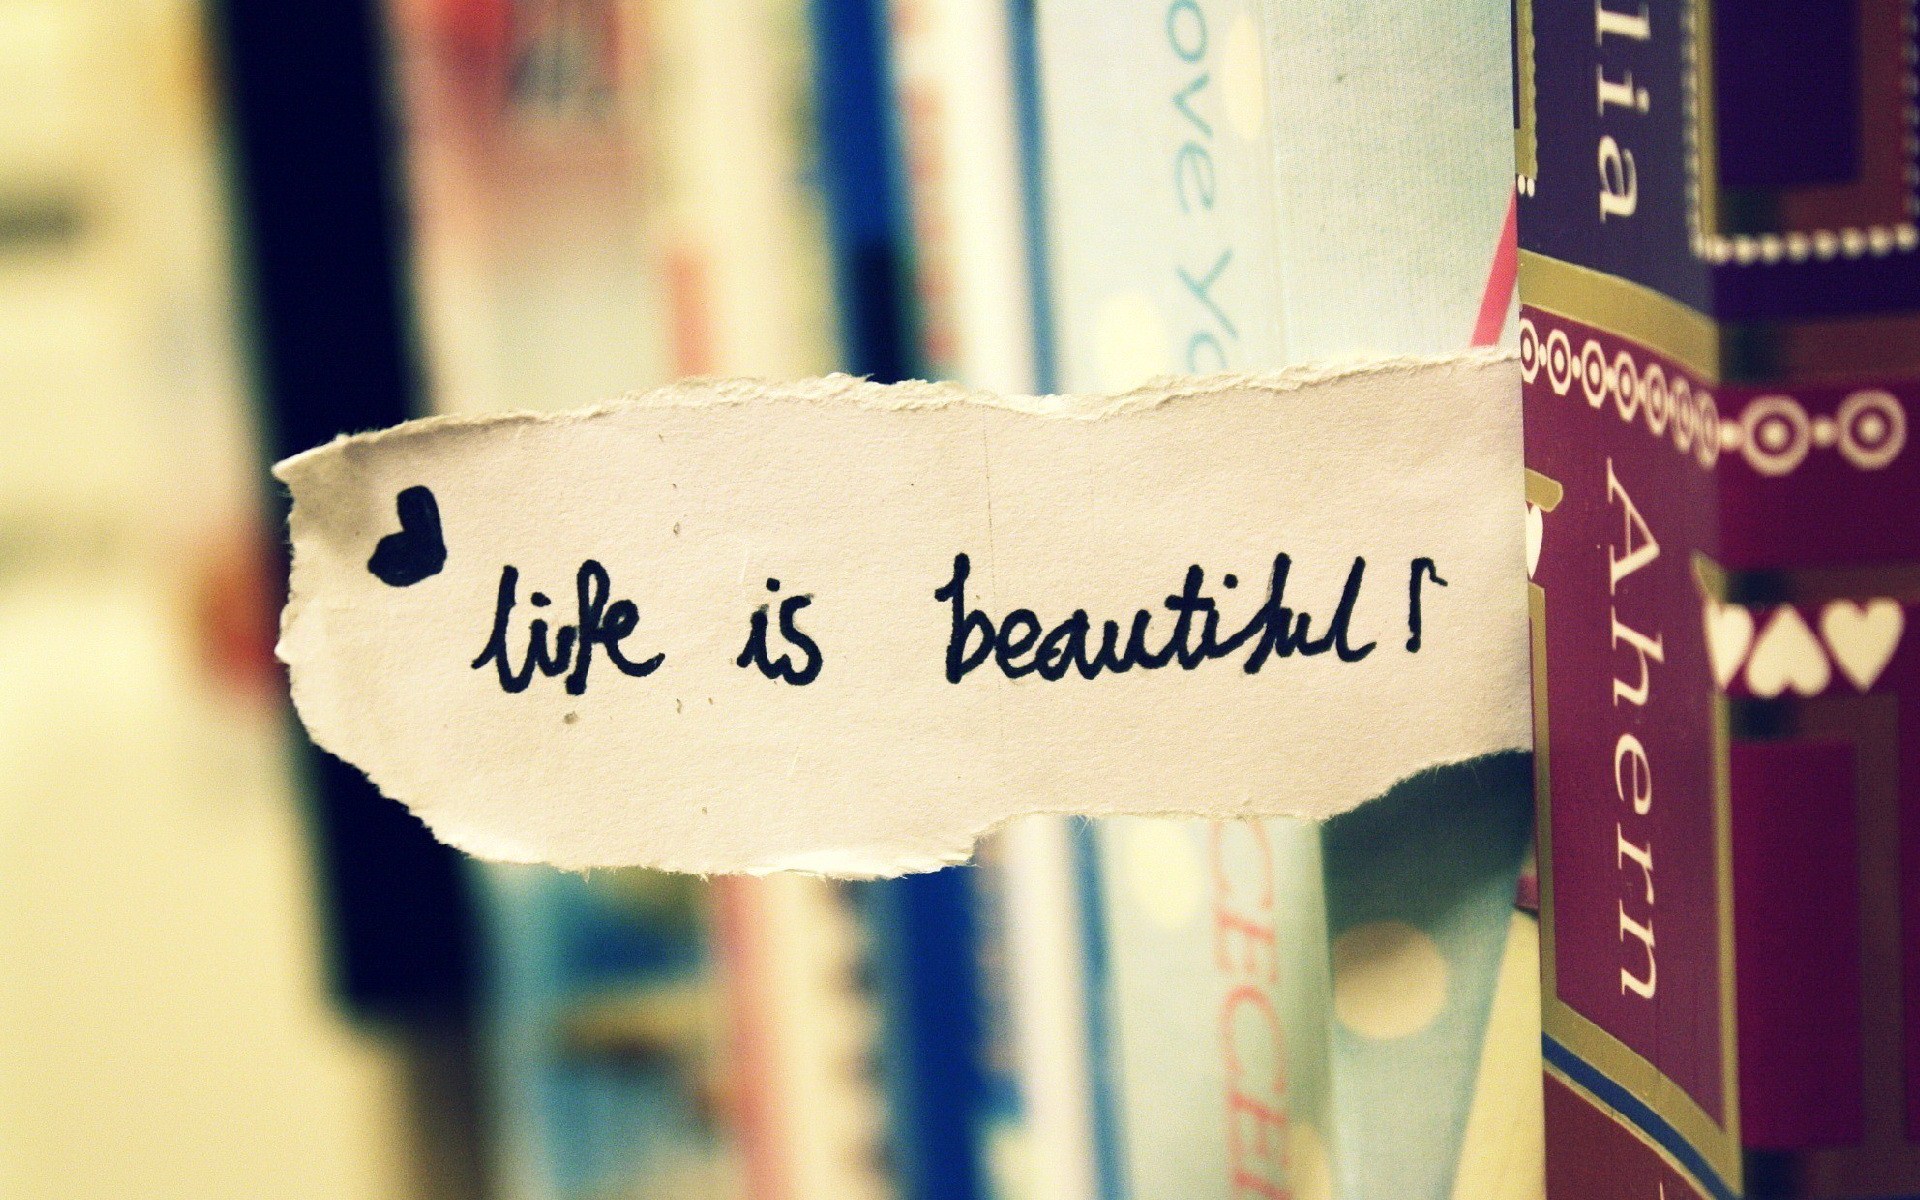 life is beautiful!
ove Yo
CECE
lia
Ahern